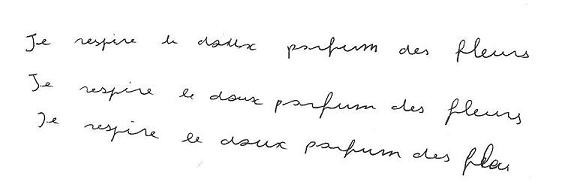 Je respire le doux parfum des fleurs
Je respire le doux parfum des fleurs
Je respire le doux parfum des